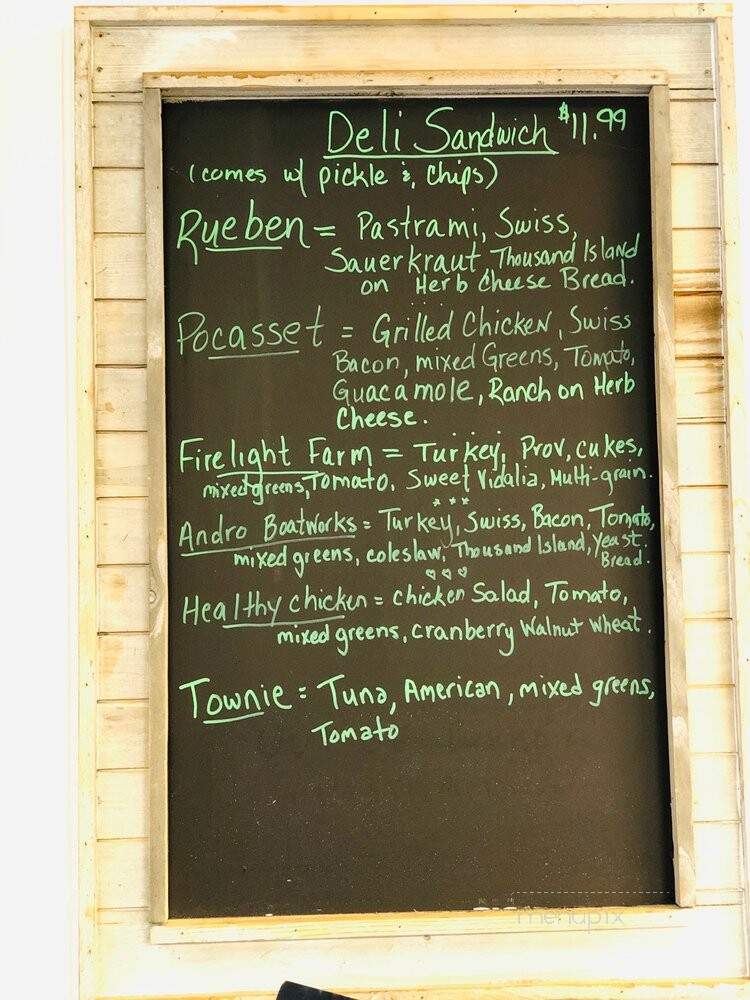 Deli Sandwich $11.99
(comes w/ pickle & chips)
Rueben = Pastrami, Swiss,
Sauerkraut, Thousand Island
on Herb Cheese Bread.
Pocasset = Grilled Chicken, Swiss
Bacon, mixed Greens, Tomato,
Guacamole, Ranch on Herb
Cheese.
Firelight Farm = Turkey, Prov, cukes,
mixed greens, Tomato, Sweet Vidalia, Multi-grain.
Andro Boatworks = Turkey, Swiss, Bacon, Tomato,
mixed greens, coleslaw, Thousand Island, Yeast
Bread.
Healthy chicken = chicken Salad, Tomato,
mixed greens, cranberry Walnut wheat.
Townie = Tuna, American, mixed greens,
Tomato
menupix